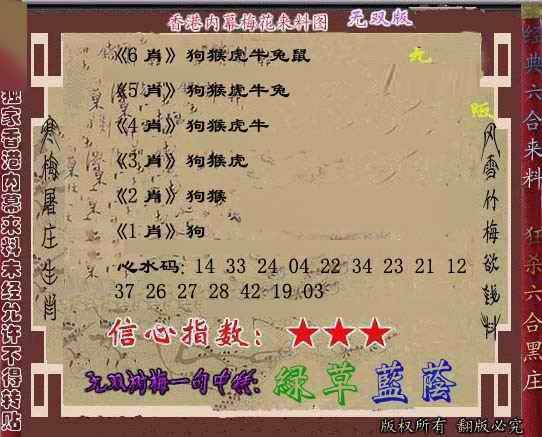 香港内幕梅花来料图 无双版
《6 肖》狗猴虎牛兔鼠
《5 肖》狗猴虎牛兔
《4 肖》狗猴虎牛
《3 肖》狗猴虎
《2 肖》狗猴
《1 肖》狗
心水码: 14 33 24 04 22 34 23 21 12
37 26 27 28 42 19 03
信心指数: ★★★
緑草藍蔭
版权所有 翻版必究
独家香港内幕来料未经允许不得转贴
寒梅屠庄生肖
风雪竹梅欲钱料
经典六合来料
狂杀六合黑庄